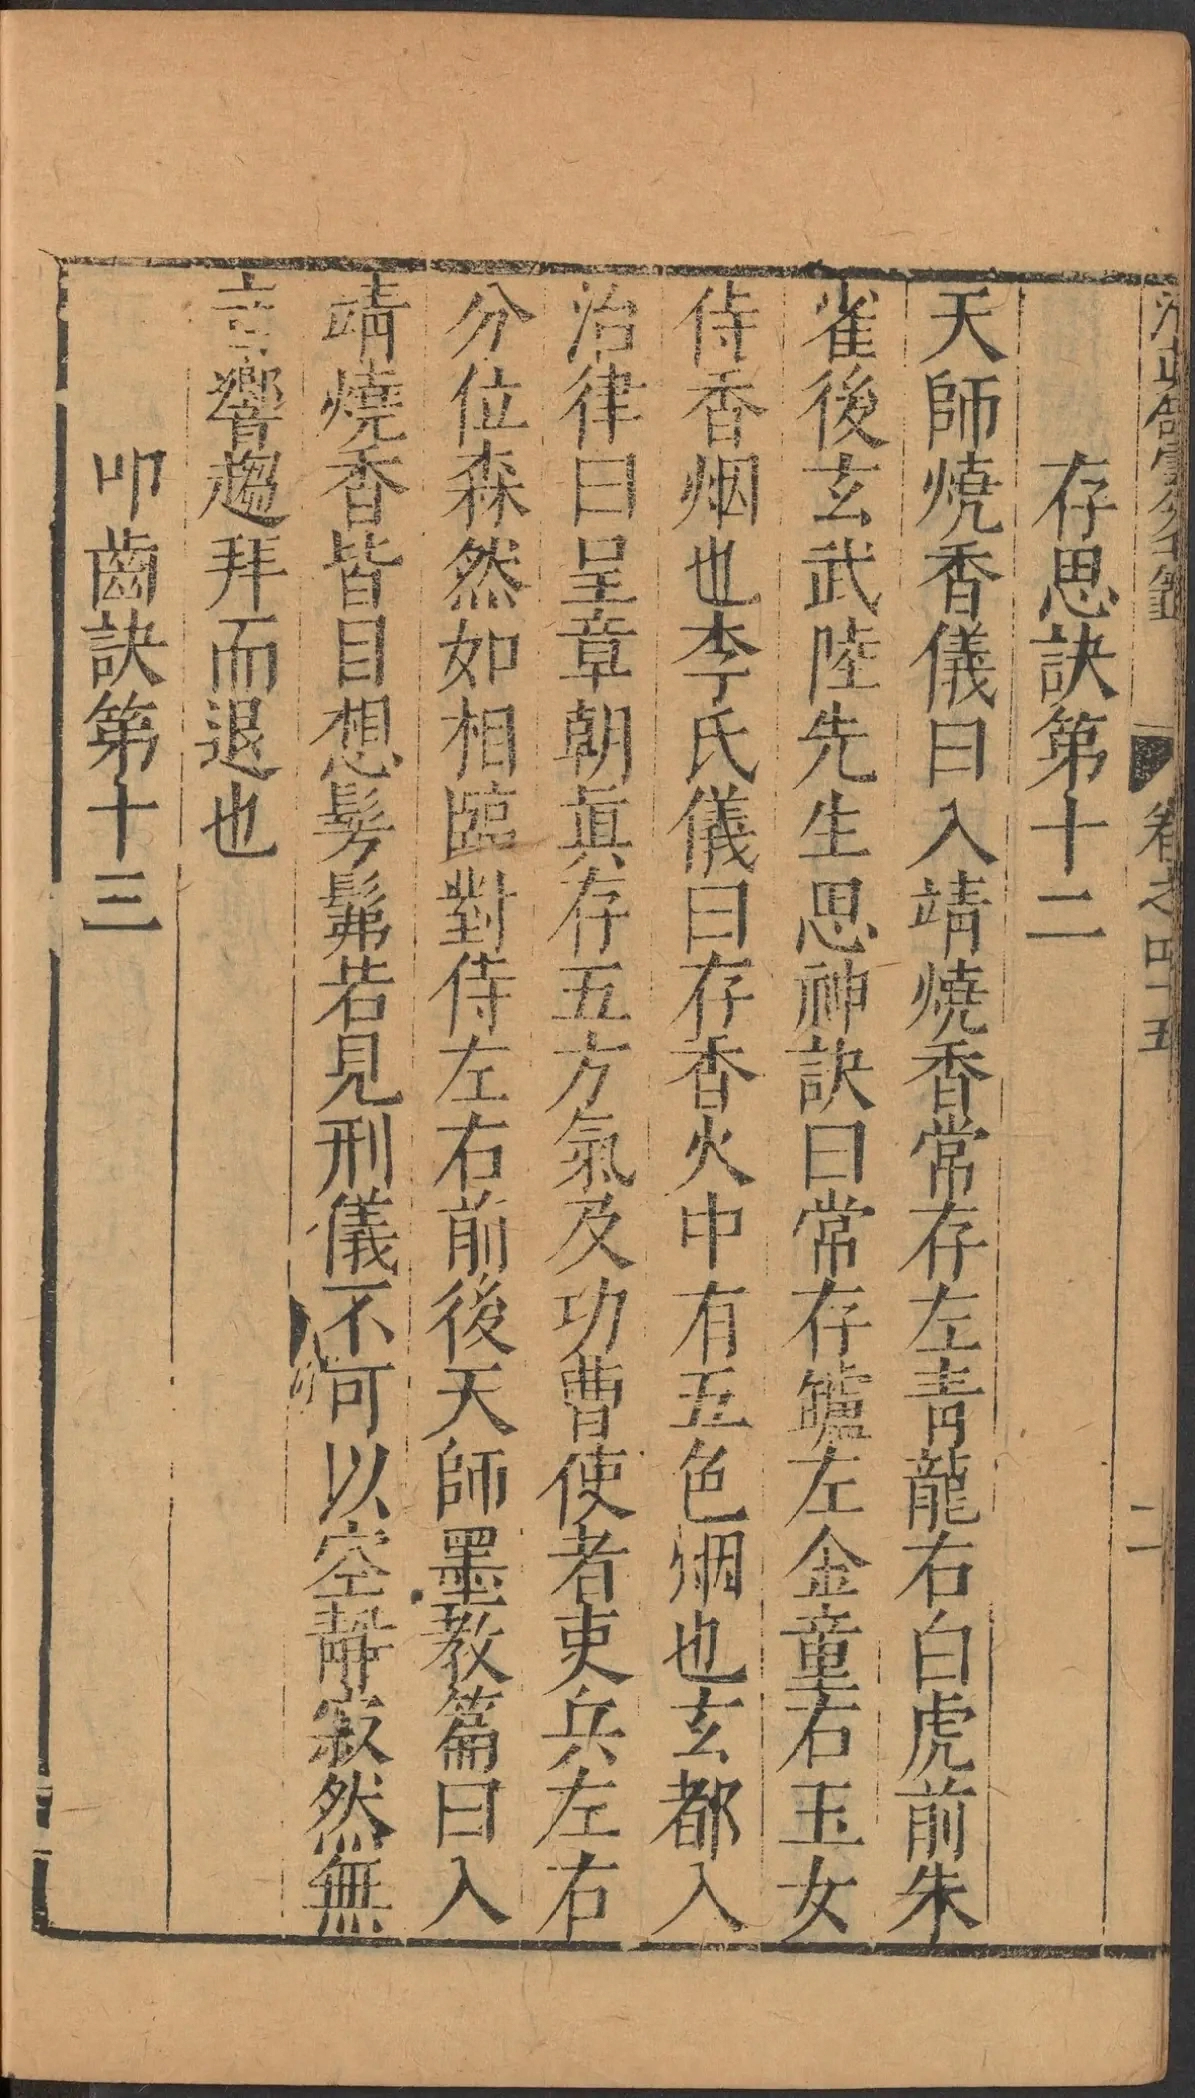 雲笈七籤
卷之四十五
二
存思訣第十二
天師燒香儀曰入靖燒香常存左青龍右白虎前朱
雀後玄武陸先生思神訣曰常存罏左金童右玉女
侍香烟也李氏儀曰存香火中有五色烟也玄都入
治律曰呈章朝眞存五方氣及功曹使者吏兵左右
分位森然如相臨對侍左右前後天師墨教篇曰入
靖燒香皆目想髣髴若見刑儀不可以空靜寂然無
音響趨拜而退也
叩齒訣第十三